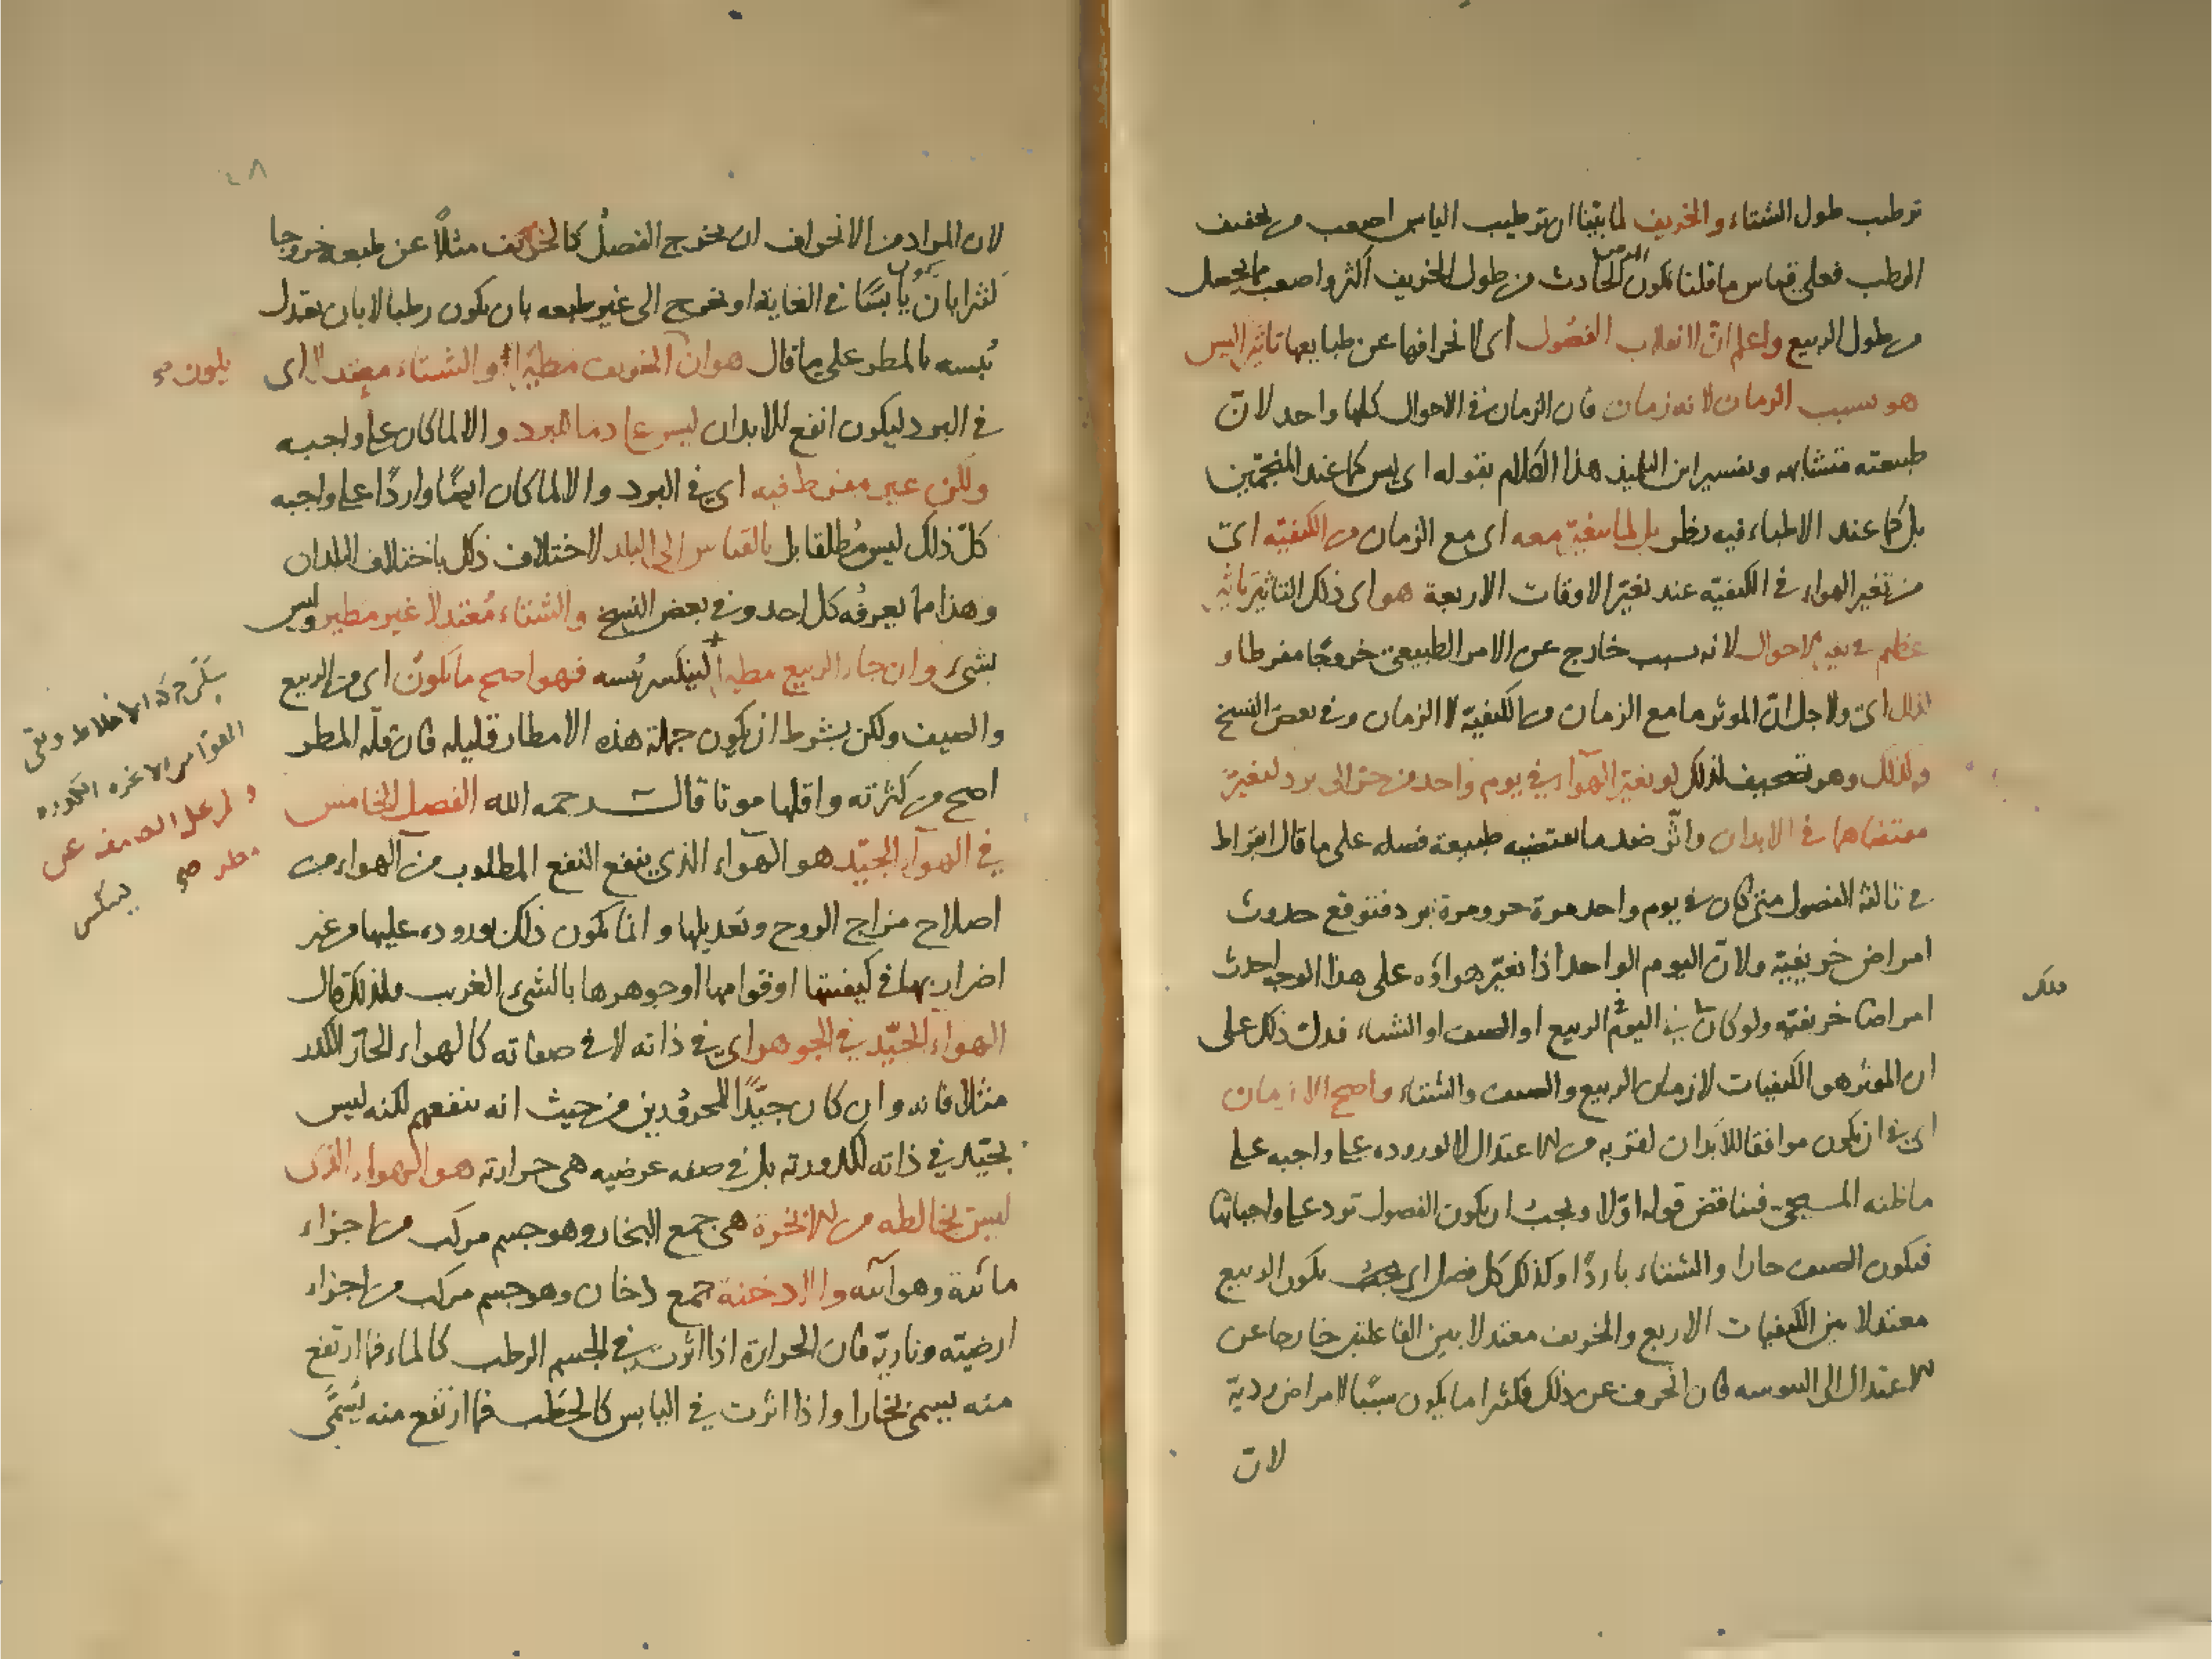 ترطب طول الشتاء والخريف لما بيّنا ان ترطيب اليابس اصعب من تجفيف
الرطب فعلى قياس ما قلنا يكون المرض الحادث من طول الخريف اكثر واصعب مما يحصل
من طول الربيع واعلم انّ لانقلاب الفصُول اى لانحرافها عن طبايعها تاثيرا ليس
هو بسبب الزمان لانه زمان فان الزمان فى الاحوال كلها واحد لانّ
طبيعته متشابهه وتفسير ابن التلميذ هذا الكلام بقوله اى ليس كما عند المنجمّين
بل كما عند الاطباء فيه نظر بل لما يتغيّر معه اى مع الزمان من الكيفيّه اى
من تغير الهواء فى الكيفيّه عند تغيّر الاوقات الاربعة هو اى ذلك التاثير تاثير
عظيم فى تغير الاحوال لانه سبب خارج عن الامر الطبيعى خروجًا مفرطا و
لذلك اى ولاجل انّ الموثر ما مع الزمان من الكيفيّة لا الزمان وفى بعض النسخ
وكذلك وهو تصحيف لذلك لو تغيّر الهوآء فى يوم واحد من حرّ الى برد لتغيّر
مقتضاهما فى الابدان واثّر ضد ما تقتضيه طبيعة فصله على ما قال ابقراط
فى ثالثة الفصول متى كان فى يوم واحد مرة حر ومرة برد فتوقع حدوث
امراض خريفيّة ولانّ اليوم الواحد اذا تغيّر هواؤه على هذا الوجه احدث
امراضا خريفيّه ولو كان فى اليوم الربيع او الصيف او الشتاء فدل ذلك على
ان الموثر هو الكيفيات لا زمان الربيع والصيف والشتاء واصح الازمان
اى فى ان يكون موافقا للابدان لقربه من الاعتدال لا لوروده على واجبه على
ما ظنه المسيحى فيناقض قوله اوّلا ويجب ان يكون الفصول ترد على واجباتها
فيكون الصيف حارا والشتاء باردًا وكذلك كل فصل اى يجب يكون الربيع
معتدلا بين الكيفيات الاربع والخريف معتدلا بين الفاعلتين خارجا عن
الاعتدال الى اليبوسه فان انحرف عن ذلك فكثيرا ما يكون سببًا لامراض ردية
لان
لان المراد من الانحراف ان يخرج الفصلُ كالخريف مثلًا عن طبعه خروجا
كثيرا بان يكون يابسًا فى الغاية او يخرج الى غير طبعه بان يكون رطبا لا بان يعتدل
يُبسه بالمطر على ما قال هو ان الخريف مطيرًا والشتاء معتدلًا اى
فى البرد ليكون انفع للابدان ليس عادما للبرد والا لما كان على واجبه
ولكن غير مفرط فيه اى فى البرد والا لما كان ايضًا واردًا على واجبه
كلّ ذلك ليس مُطلقا بل بالقياس الى البلد لاختلاف ذلك باختلاف البلدان
وهذا مما يعرفُه كل احد وفى بعض النسخ والشتاء مُعتدلا غير مطير وليس
بشىء وان جاء الربيع مطيرا لينكسر يُبسه فهو اصح ما يكونُ اى من الربيع
والصيف ولكن بشرط ان يكون جملة هذه الامطار قليله فان قلّه المطر
اصح من كثرته واقلها موتا قال رحمه الله الفصل الخامس
فى الهوآء الجيّد هو الهوآء الذى ينفع النفع المطلوب من الهواء من
اصلاح مزاج الروح وتعديلها وانما يكون ذلك بوروده عليها من غير
اضرار بها فى كيفيتها او قوامها او جوهرها بالشىء الغريب ولذلك قال
الهوآء الجيّد فى الجوهر اى فى ذاته لا فى صفاته كالهواء الحار الكدر
مثلا فانه وان كان جيّدًا للمحرُورين من حيث انه ينفعهم لكنه ليس
بجيّد فى ذاته لكدورته بل فى صفه عرضيه هى حرارته هو الهواء الذى
ليس يخالطه من الابخرة هى جمع البخار وهو جسم مركب من اجزاء
مائية وهوائيه والادخنة جمع دخان وهو جسم مركب من اجزاء
ارضيّه وناريّه فان الحرارة اذا اثرت فى الجسم الرطب كالماء فما ارتفع
منه يسمى بخارا واذا اثرت فى اليابس كالحَطب فما ارتفع منه يُسمَّى
يكون صح